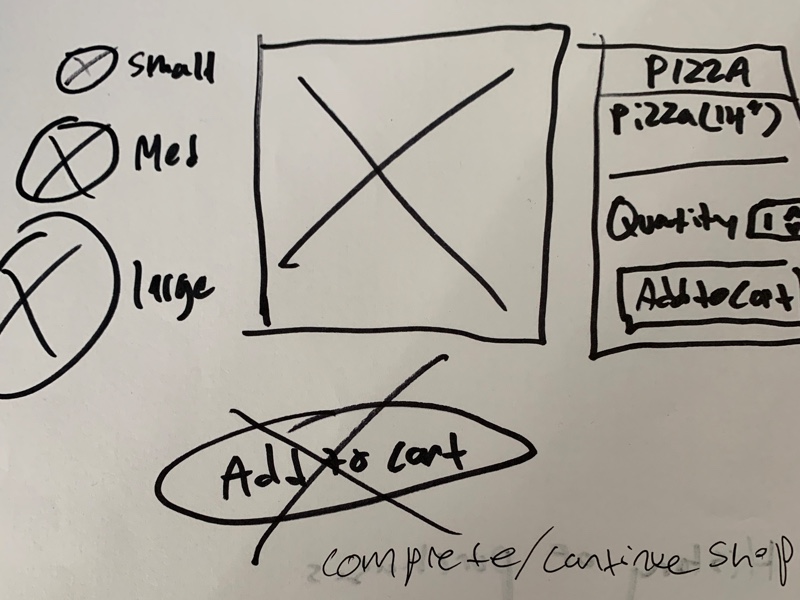 small
Med
large
PIZZA
Pizza (14")
Quantity 1
Add to Cart
Add to cart
complete/continue shop